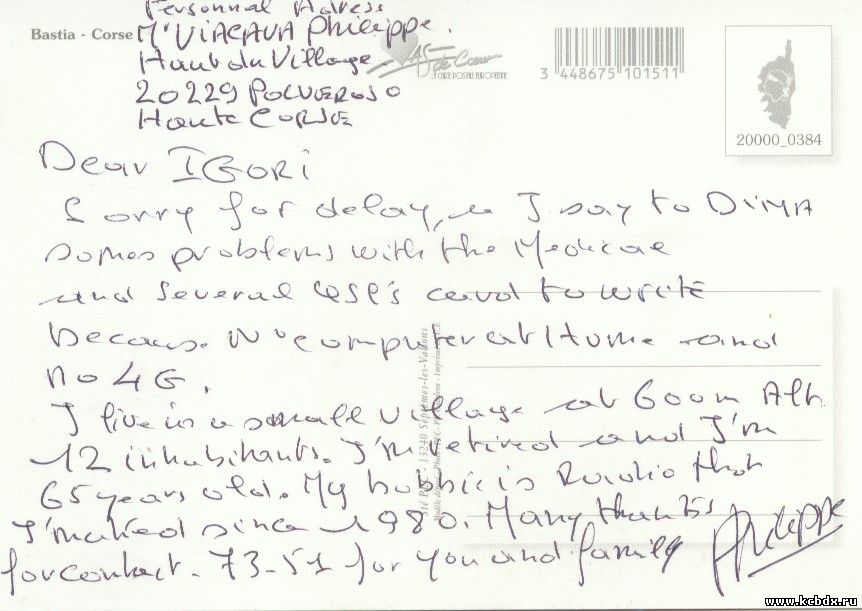 Personnal Adress
Bastia - Corse
Mr VIACAVA Philippe.
Haut du Village
AS de Coeur
CARTE POSTALE EUROPEENNE
20229 POLVEROSO
Haute CORSE
3 448675 101511
20000_0384
Dear IGORI
Sorry for delay, I say to DIMA
somes problems with the Medicae
and several QSL's card to write
becaus. No computer at Home and
no 4G.
I live in a small village at 600m Alt.
12 inhabitants. I'm retired and I'm
65 years old. My hobbie is Radio that
I'maked since 1980. Many thanks
for contact. 73-51 for you and family
Philippe
13240 Septèmes-les-Vallons
www.kcbdx.ru